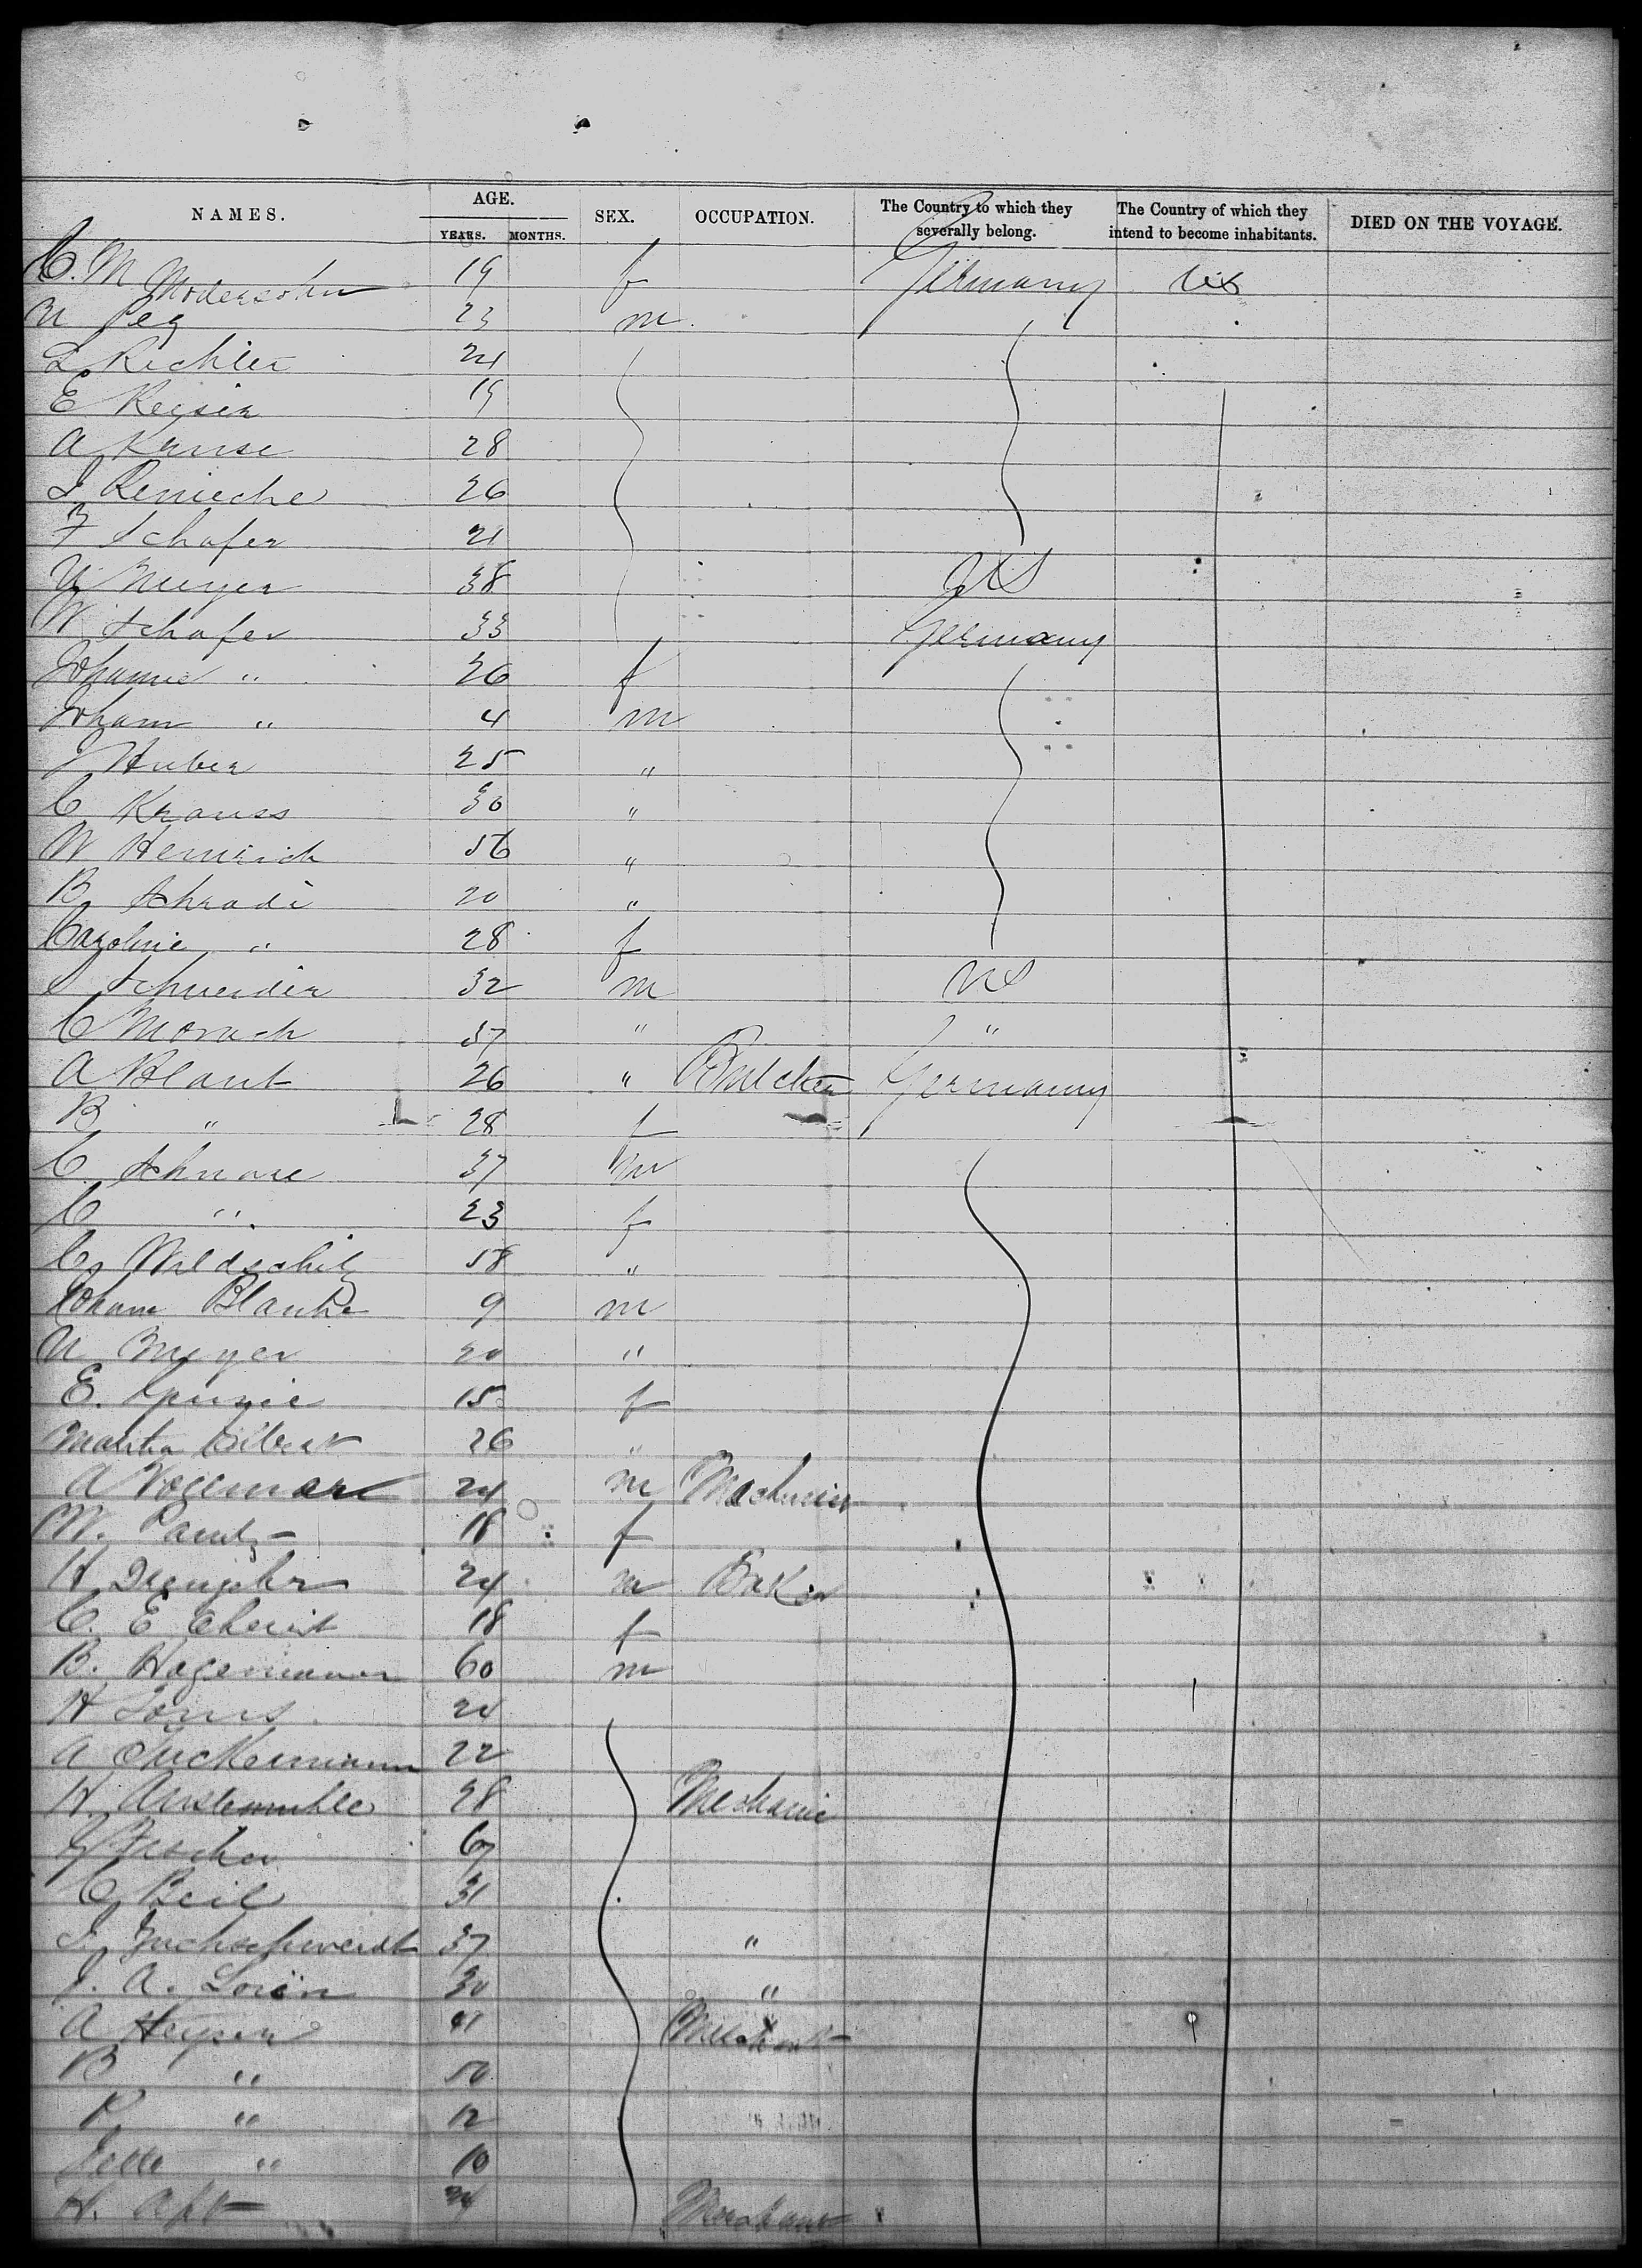 NAMES. AGE. SEX. OCCUPATION. The Country to which they severally belong. The Country of which they intend to become inhabitants. DIED ON THE VOYAGE.
YEARS. MONTHS.
C. M Modersohn 19 f Germany US
23 m
L Richter 24
E Keyser 19
A Kruse 28
J Reniecke 26
F Schafer 21
Meyer 38 US
W Schafer 33 Germany
Johanne " 26 f
Johann " 4 m
J Huber 25 "
C Krauss 30 "
W Heinrich 56 "
B Schrade 20 "
Caroline " 28 f
Schneider 32 m US
C Morach 37 " "
A Blank 26 " Butcher Germany
B " 28 f
C Schnare 37 m
C " 23 f
C Mildschitz 58 "
Johann Blanke 9 m
Meyer 20 "
E. 15 f
Martha 26 "
A Wogeman 24 m Machinist
W. 18 f
H 24 m Baker
C. E Christ 18 f
B. Hagemann 60 m
H 20
A Suckermann 22
H. 28 Mechanic
Fischer 67
C Beil 31
J. Zuchschwerdt 37 "
J. A. Lorien 30 "
A Heysen 41 Merchant
B " 50
R " 12
" 10
H. Apt 24 Merchant